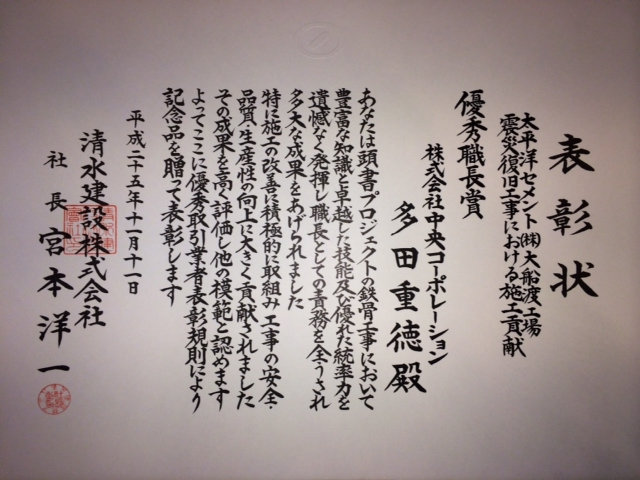 表彰状
太平洋セメント㈱大船渡工場
震災復旧工事における施工貢献
優秀職長賞
株式会社中央コーポレーション
多田重徳殿
あなたは頭書プロジェクトの鉄骨工事において
豊富な知識と卓越した技能及び優れた統率力を
遺憾なく発揮し職長としての責務を全うされ
多大な成果をあげられました
特に施工の改善に積極的に取組み工事の安全・
品質・生産性の向上に大きく貢献されました
その成果を高く評価し他の模範と認めます
よってここに優秀取引業者表彰規則により
記念品を贈って表彰します
平成二十五年十一月十一日
清水建設株式会社
社長宮本洋一